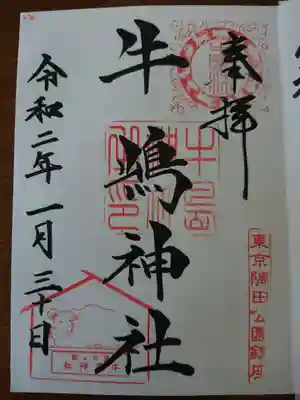 奉拝
東京隅田公園鎮座
牛嶋神社
令和二年一月三十日